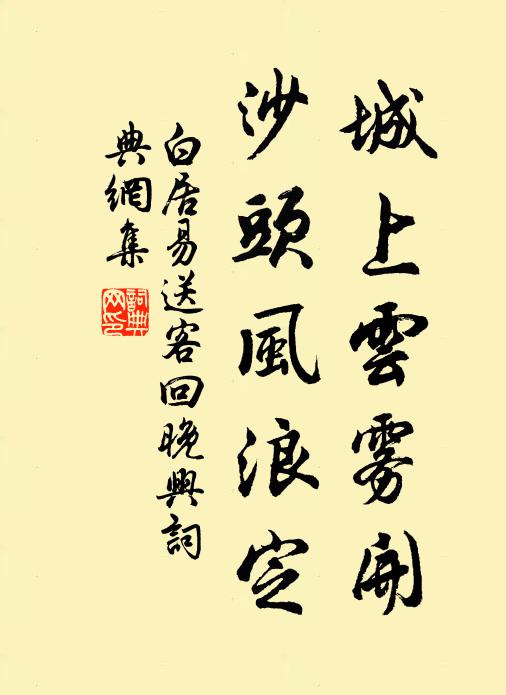 城上雲霧開
沙頭風浪定
白居易送客回晚興詞
典網集
詞典網印